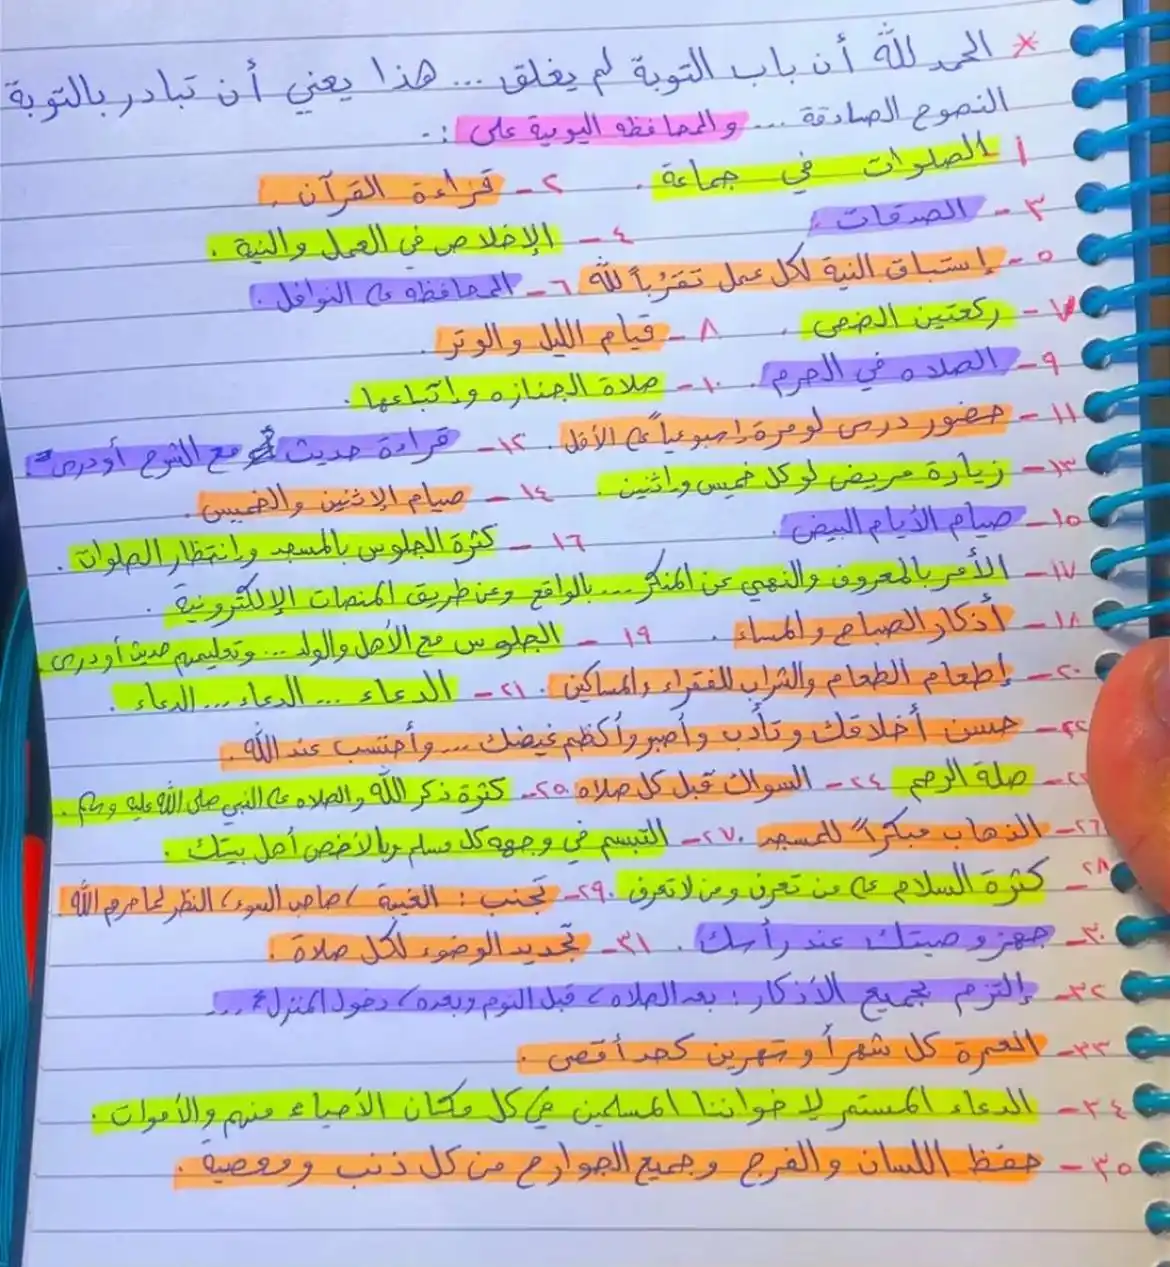 * الحمد لله أن باب التوبة لم يغلق ... هذا يعني أن تبادر بالتوبة
النصوح الصادقة ... والمحافظه اليومية على :-
١ الصلوات في جماعة . ٢- قراءة القرآن .
٣- الصدقات . ٤- الإخلاص في العمل والنية .
٥- إستباق النية لكل عمل تقرُباً لله ٦- المحافظه على النوافل .
٧- ركعتين الضحى . ٨- قيام الليل والوتر .
٩- الصلاه في الحرم . ١٠- صلاة الجنازه واتباعها .
١١- حضور درس لو مرة إسبوعياً على الأقل . ١٢- قراءة حديث مع الشرح أو درس
١٣- زيارة مريض لو كل خميس واثنين . ١٤- صيام الإثنين والخميس .
١٥- صيام الأيام البيض . ١٦- كثرة الجلوس بالمسجد وانتظار الصلوات .
١٧- الأمر بالمعروف والنهي عن المنكر ... بالواقع وعن طريق المنصات الإلكترونية .
١٨- أذكار الصباح والمساء . ١٩- الجلوس مع الأهل والولد ... وتعليمهم حديث أو درس
٢٠- إطعام الطعام والشراب للفقراء والمساكين . ٢١- الدعاء ... الدعاء ... الدعاء .
٢٢- حسن أخلاقك وتأدب وأصبر وأكظم غيضك ... وأحتسب عند الله .
٢٣- صلة الرحم ٢٤- السواك قبل كل صلاه . ٢٥- كثرة ذكر الله والصلاه على النبي صلى الله عليه وسلم .
٢٦- الذهاب مبكراً للمسجد . ٢٧- التبسم في وجهه كل مسلم وبالأخص أهل بيتك .
٢٨- كثرة السلام على من تعرف ومن لا تعرف . ٢٩- تجنب : الغيبة ، صاحب السوء ، النظر لما حرم الله .
٣٠- جهز وصيتك عند رأسك . ٣١- تجديد الوضوء لكل صلاة .
٣٢- إلتزم بجميع الأذكار : بعد الصلاه ، قبل النوم وبعده ، دخول المنزل ...
٣٣- العمرة كل شهر أو شهرين كحد أقصى .
٣٤- الدعاء المستمر لاخواننا المسلمين في كل مكان الأحياء منهم والأموات .
٣٥- حفظ اللسان والفرج وجميع الجوارح من كل ذنب ومعصية .